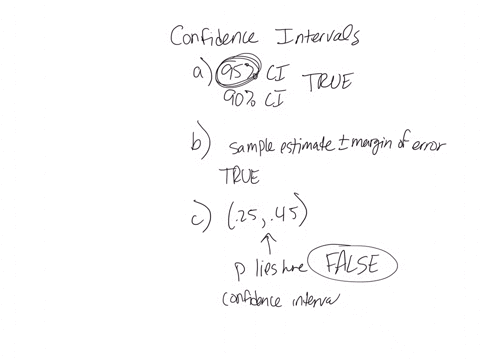 Confidence Intervals
a) 95% CI TRUE
90% CI
b) sample estimate ± margin of error
TRUE
c) (.25, .45)
p lies here FALSE
confidence interval